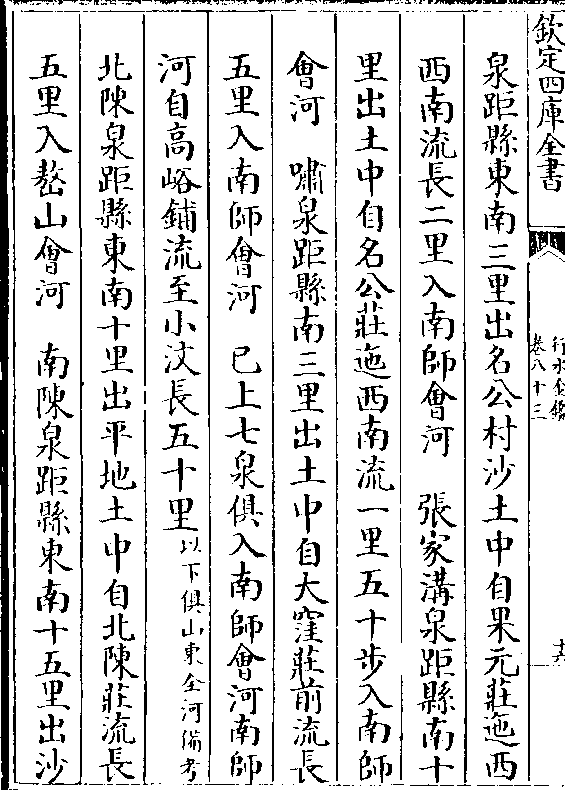 欽定四庫全書
行水金鑑
卷八十三
十六
泉距縣東南三里出名公村沙土中自果元莊迤西
西南流長二里入南師會河　張家溝泉距縣南十
里出土中自名公莊迤西南流一里五十步入南師
會河　嘯泉距縣南三里出土中自大窪莊前流長
五里入南師會河　已上七泉俱入南師會河南師
河自高峪鋪流至小汶長五十里以下俱山東全河備考
北陳泉距縣東南十里出平地土中自北陳莊流長
五里入嶅山會河　南陳泉距縣東南十五里出沙